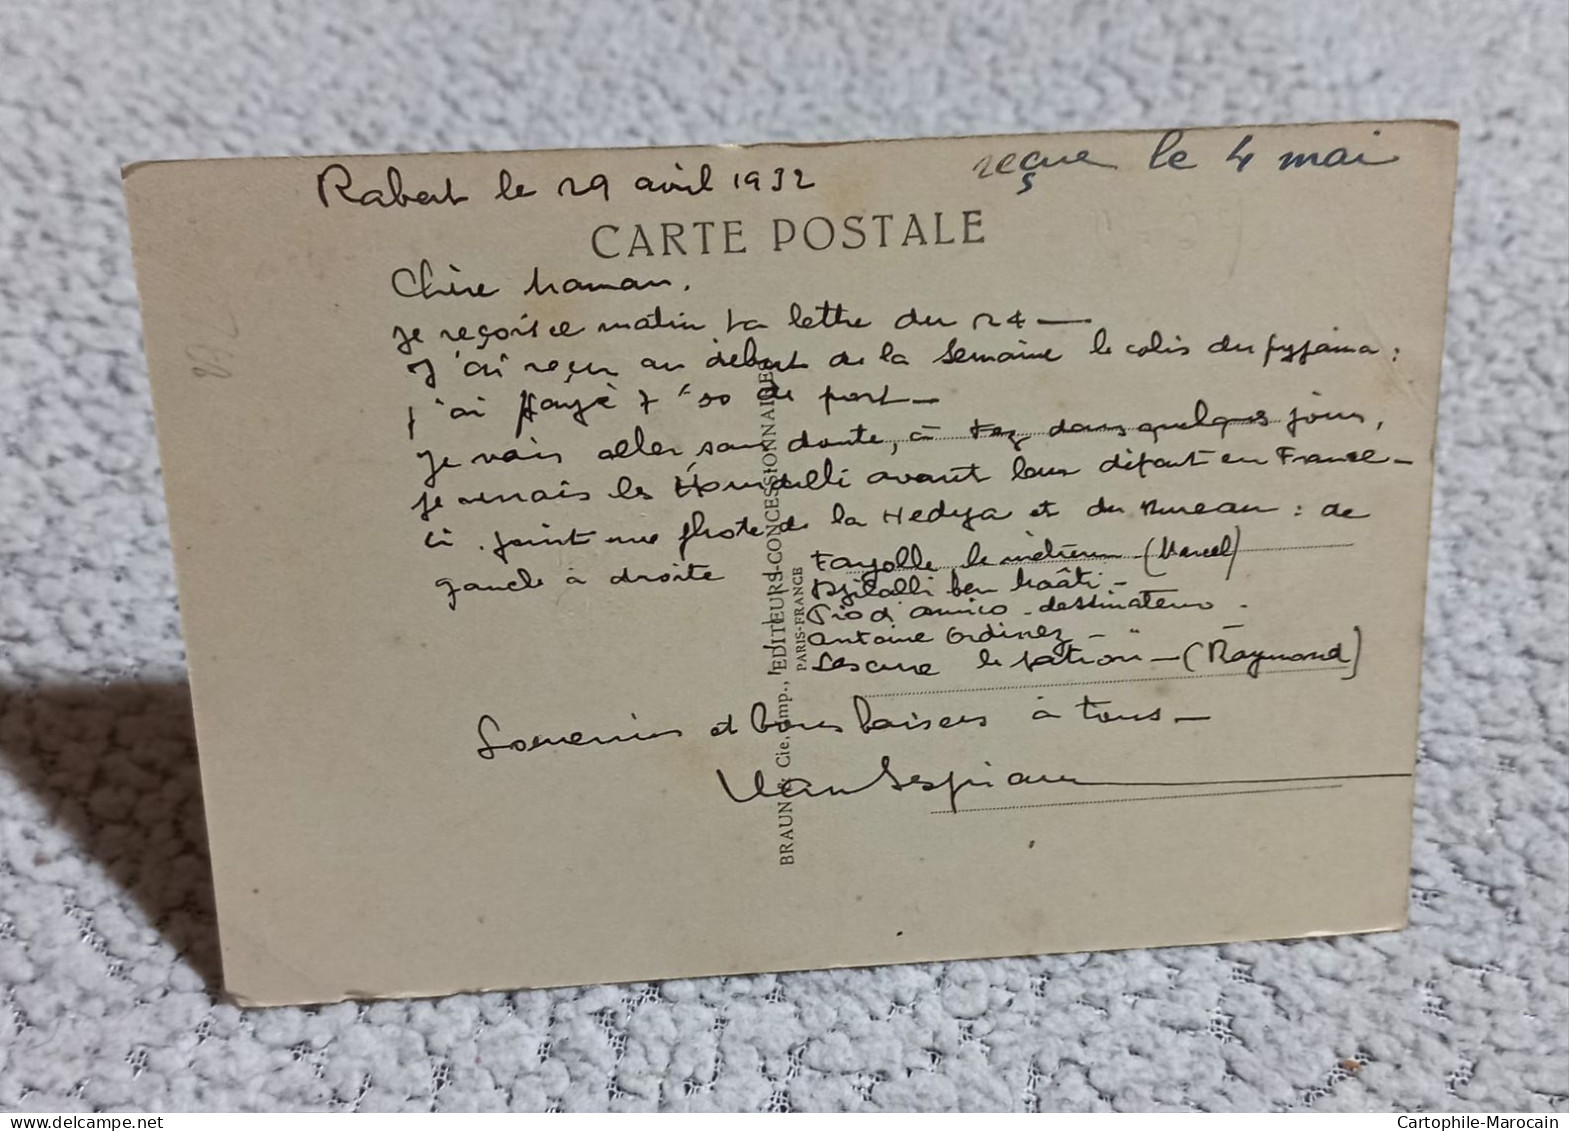 Rabat le 29 avril 1932
reçue le 4 mai
CARTE POSTALE
Chère Maman.
je reçois ce matin ta lettre du 24 —
J'ai reçu au début de la semaine le colis du pyjama :
j'ai payé 7 de port —
je vais aller, sans doute, à Fez dans quelques jours,
je les avant leur départ en France —
ci-joint une photo de la Hedya et du Bureau : de
gauche à droite
Fayolle le (Marcel)
Djilalli ben Maâti —
Pio d'amico - dessinateur -
Antoine Ordinez - "
Lescure le patron — (Raymond)
Souvenirs et bons baisers à tous —
BRAUN & Cie, Imp., EDITEURS-CONCESSIONNAIRES
PARIS-FRANCE
Cartophile-Marocain